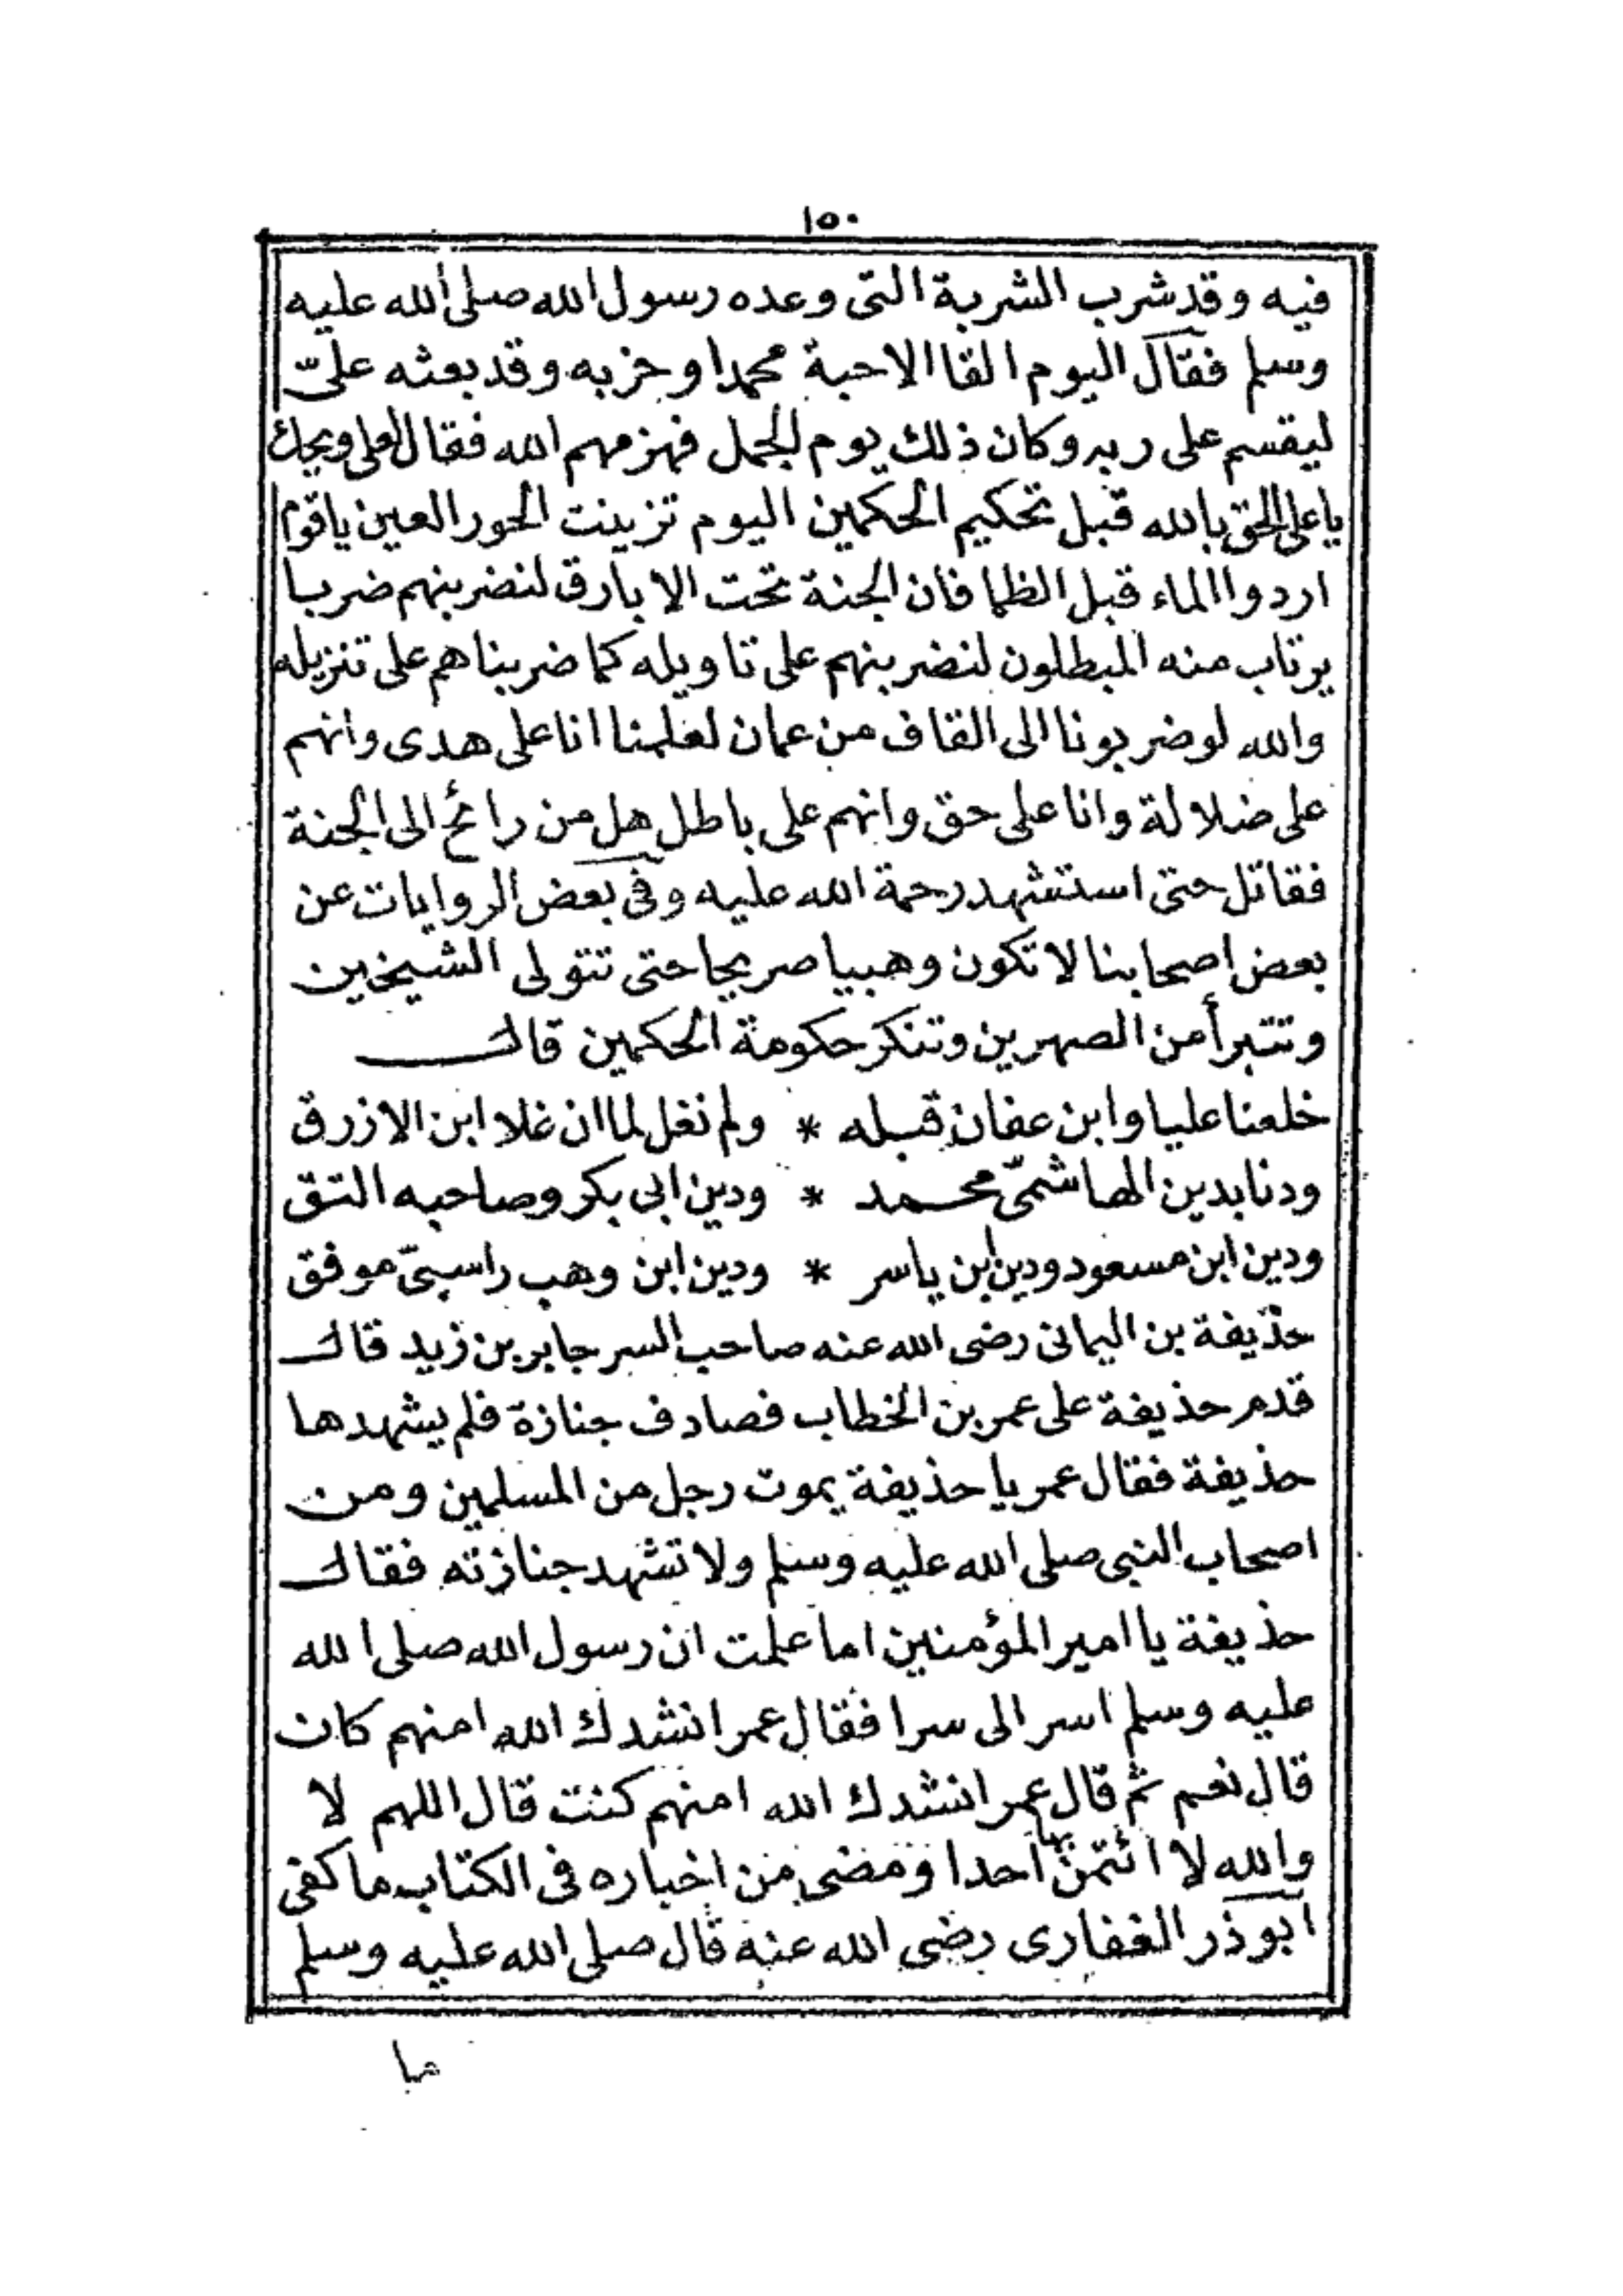 ١٥٠
فيه وقد شرب الشربة التى وعده رسول الله صلى الله عليه
وسلم فقال اليوم القا الاحبة محمدا وحزبه وقد بعثه علىّ
ليقسم على ربه وكان ذلك يوم الجمل فهزمهم الله فقال
يا على الحق بالله قبل تحكيم الحكمين اليوم تزينت الحور العين ياقوم
اردوا الماء قبل الظما فان الجنة تحت الابارق لنضربنهم ضربا
يرتاب منه المبطلون لنضربنهم على تاويله كما ضربناهم على تنزيله
والله لو ضربونا الى القاف من عمان لعلمنا انا على هدى وانهم
على ضلالة وانا على حق وانهم على باطل هل من رائح الى الجنة
فقاتل حتى استشهد رحمة الله عليه وفى بعض الروايات عن
بعض اصحابنا لا تكون وهبيا صريحا حتى تتولى الشيخين
وتتبرأ من الصهرين وتنكر حكومة الحكمين قال
خلعنا عليا وابن عفان قبله * ولم نغل لما ان غلا ابن الازرق
ودنا بدين الهاشمىّ محمد * ودين ابى بكر وصاحبه التقى
ودين ابن مسعود ودين ابن ياسر * ودين ابن وهب راسبىّ موفق
حذيفة بن اليمانى رضى الله عنه صاحب السر جابر بن زيد قال
قدم حذيفة على عمر بن الخطاب فصادف جنازة فلم يشهدها
حذيفة فقال عمر يا حذيفة يموت رجل من المسلمين ومن
اصحاب النبى صلى الله عليه وسلم ولا تشهد جنازته فقال
حذيفة يا امير المؤمنين اما علمت ان رسول الله صلى الله
عليه وسلم اسر الى سرا فقال عمر انشدك الله امنهم كان
قال نعم ثم قال عمر انشدك الله امنهم كنت قال اللهم لا
والله لا ائتمن بها احدا ومضى من اخباره فى الكتاب ما كفى
ابو ذر الغفارى رضى الله عنه قال صلى الله عليه وسلم
ما